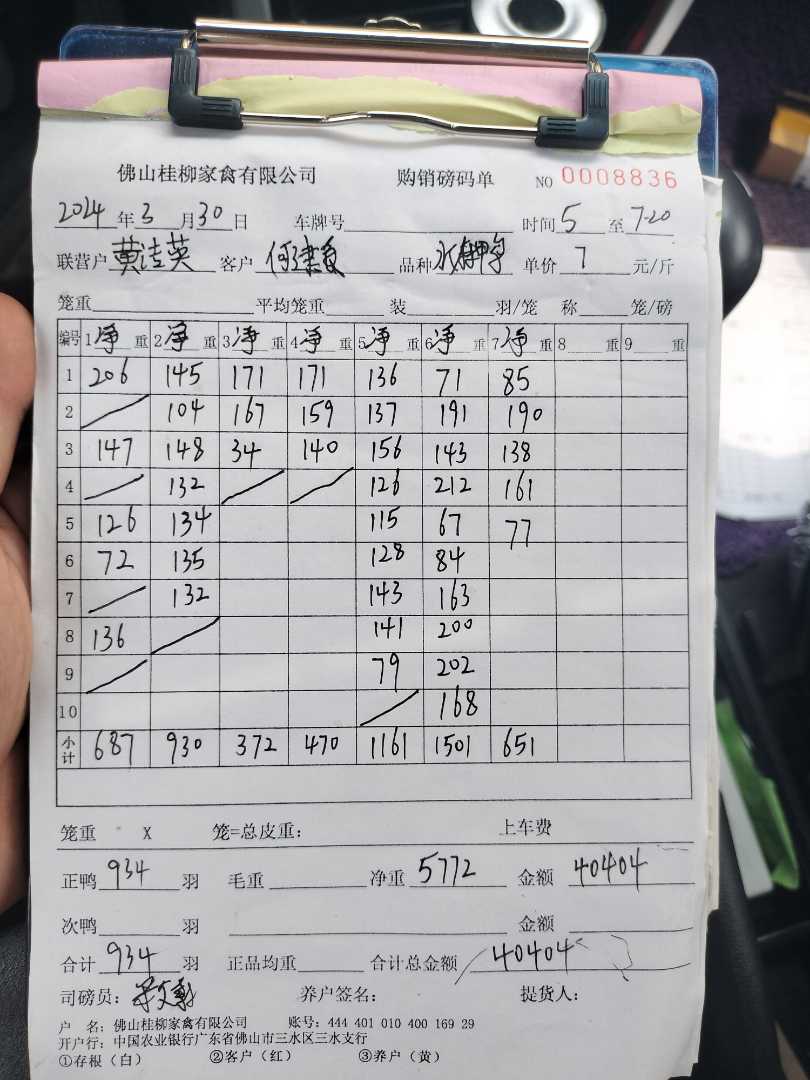 佛山桂柳家禽有限公司 购销磅码单 NO 0008836
2024年3月30日 车牌号 时间5至7.20
联营户 黄洁英 客户 品种 单价7元/斤
笼重 平均笼重 装 羽/笼 称 笼/磅
编号 1净重 2净重 3净重 4净重 5净重 6净重 7净重 8 重 9 重
1 206 145 171 171 136 71 85
2 / 104 167 159 137 191 190
3 147 148 34 140 156 143 138
4 / 132 / / 126 212 161
5 126 134 115 67 77
6 72 135 128 84
7 / 132 143 163
8 136 / 141 200
9 / 79 202
10 / 168
小计 687 930 372 470 1161 1501 651
笼重 X 笼=总皮重： 上车费
正鸭934羽 毛重 净重5772 金额40404
次鸭 羽 金额
合计934羽 正品均重 合计总金额40404
司磅员： 养户签名： 提货人：
户 名：佛山桂柳家禽有限公司 账号：444 401 010 400 169 29
开户行：中国农业银行广东省佛山市三水区三水支行
①存根（白） ②客户（红） ③养户（黄）